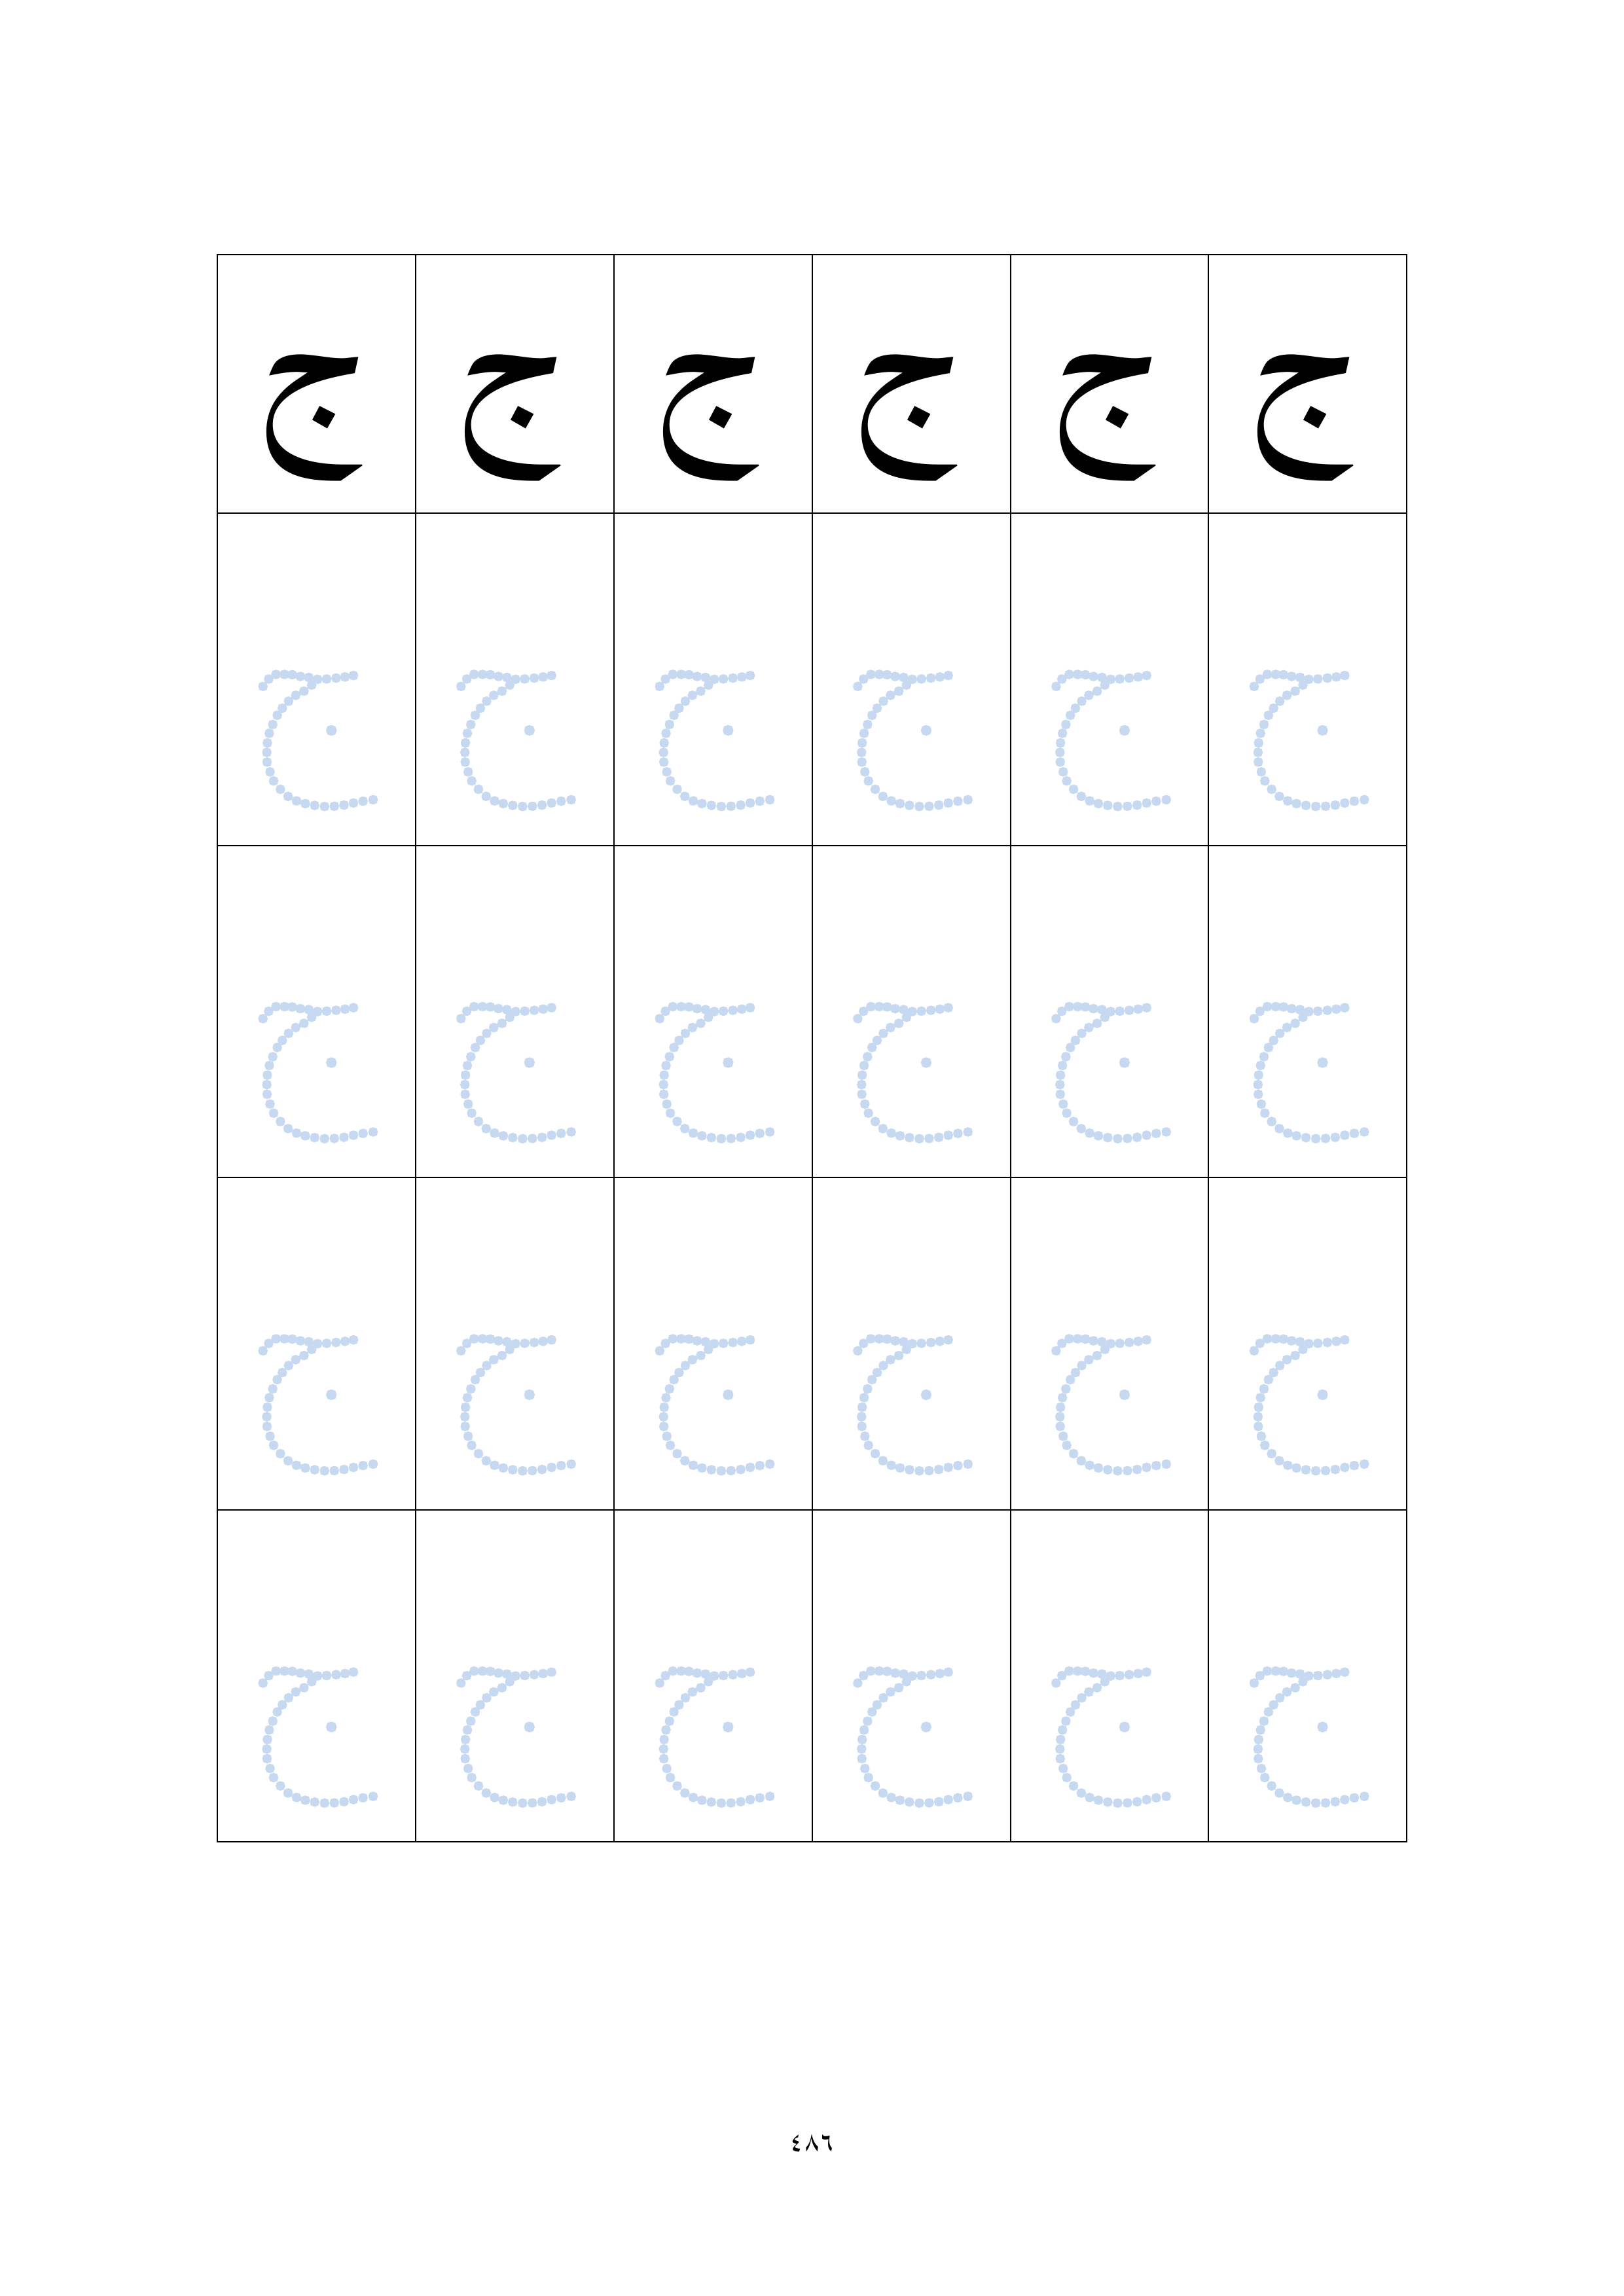 ج ج ج ج ج ج
ج ج ج ج ج ج
ج ج ج ج ج ج
ج ج ج ج ج ج
ج ج ج ج ج ج
٤٨٦